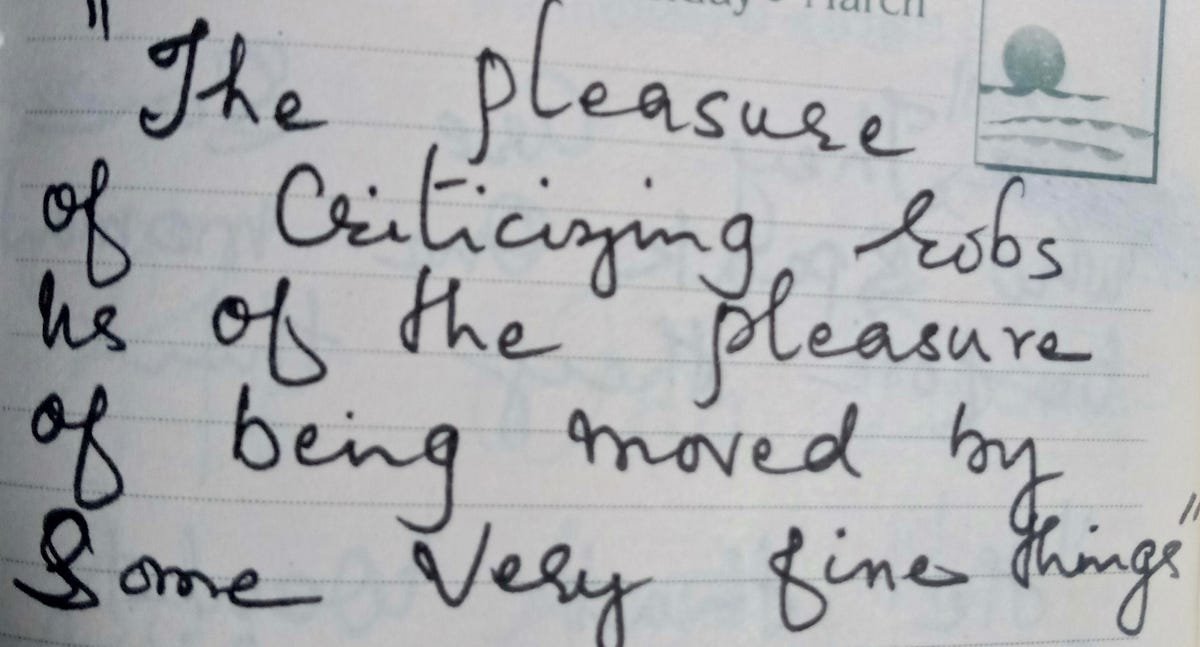 March
"The pleasure
of Criticizing robs
us of the pleasure
of being moved by
Some Very fine things"